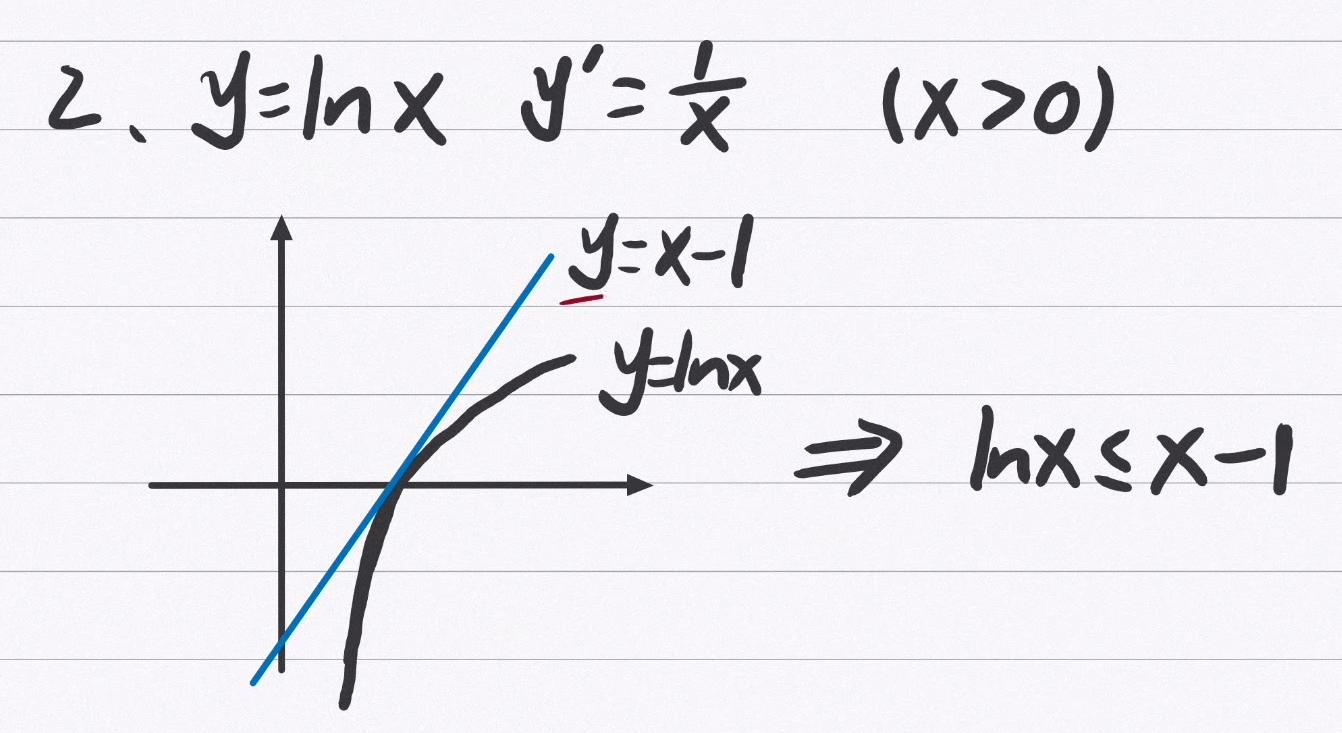 2、y=lnx y′=1/x (x>0)
y=x-1
y=lnx
⇒ lnx≤x-1